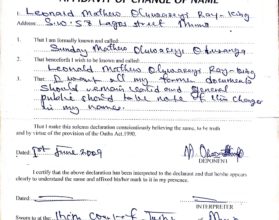 AFFIDAVIT OF CHANGE OF NAME
I, Leonard Mathew Oluwaseyi Ray-King
Address: S.W. 0:58 Lagos Street Minna
1. That I am formally known and called
Sunday Mathew Oluwaseyi
2. That henceforth I wish to be known and called:
Leonard Mathew Oluwaseyi Ray-King
3. all my former documents
should remain valid and general
public should take note of this change
in my name.
That I make this solemn declaration conscientiously believing the same, to be truth
and by virtue of the provision of the Oaths Act, 1990.
Dated: 1st June 2009
I certify that the above declaration has been interpreted to the declarant and that he/she appears
clearly to understand the same and affixed his/her mark to it in my presence.
Dated
INTERPRETER